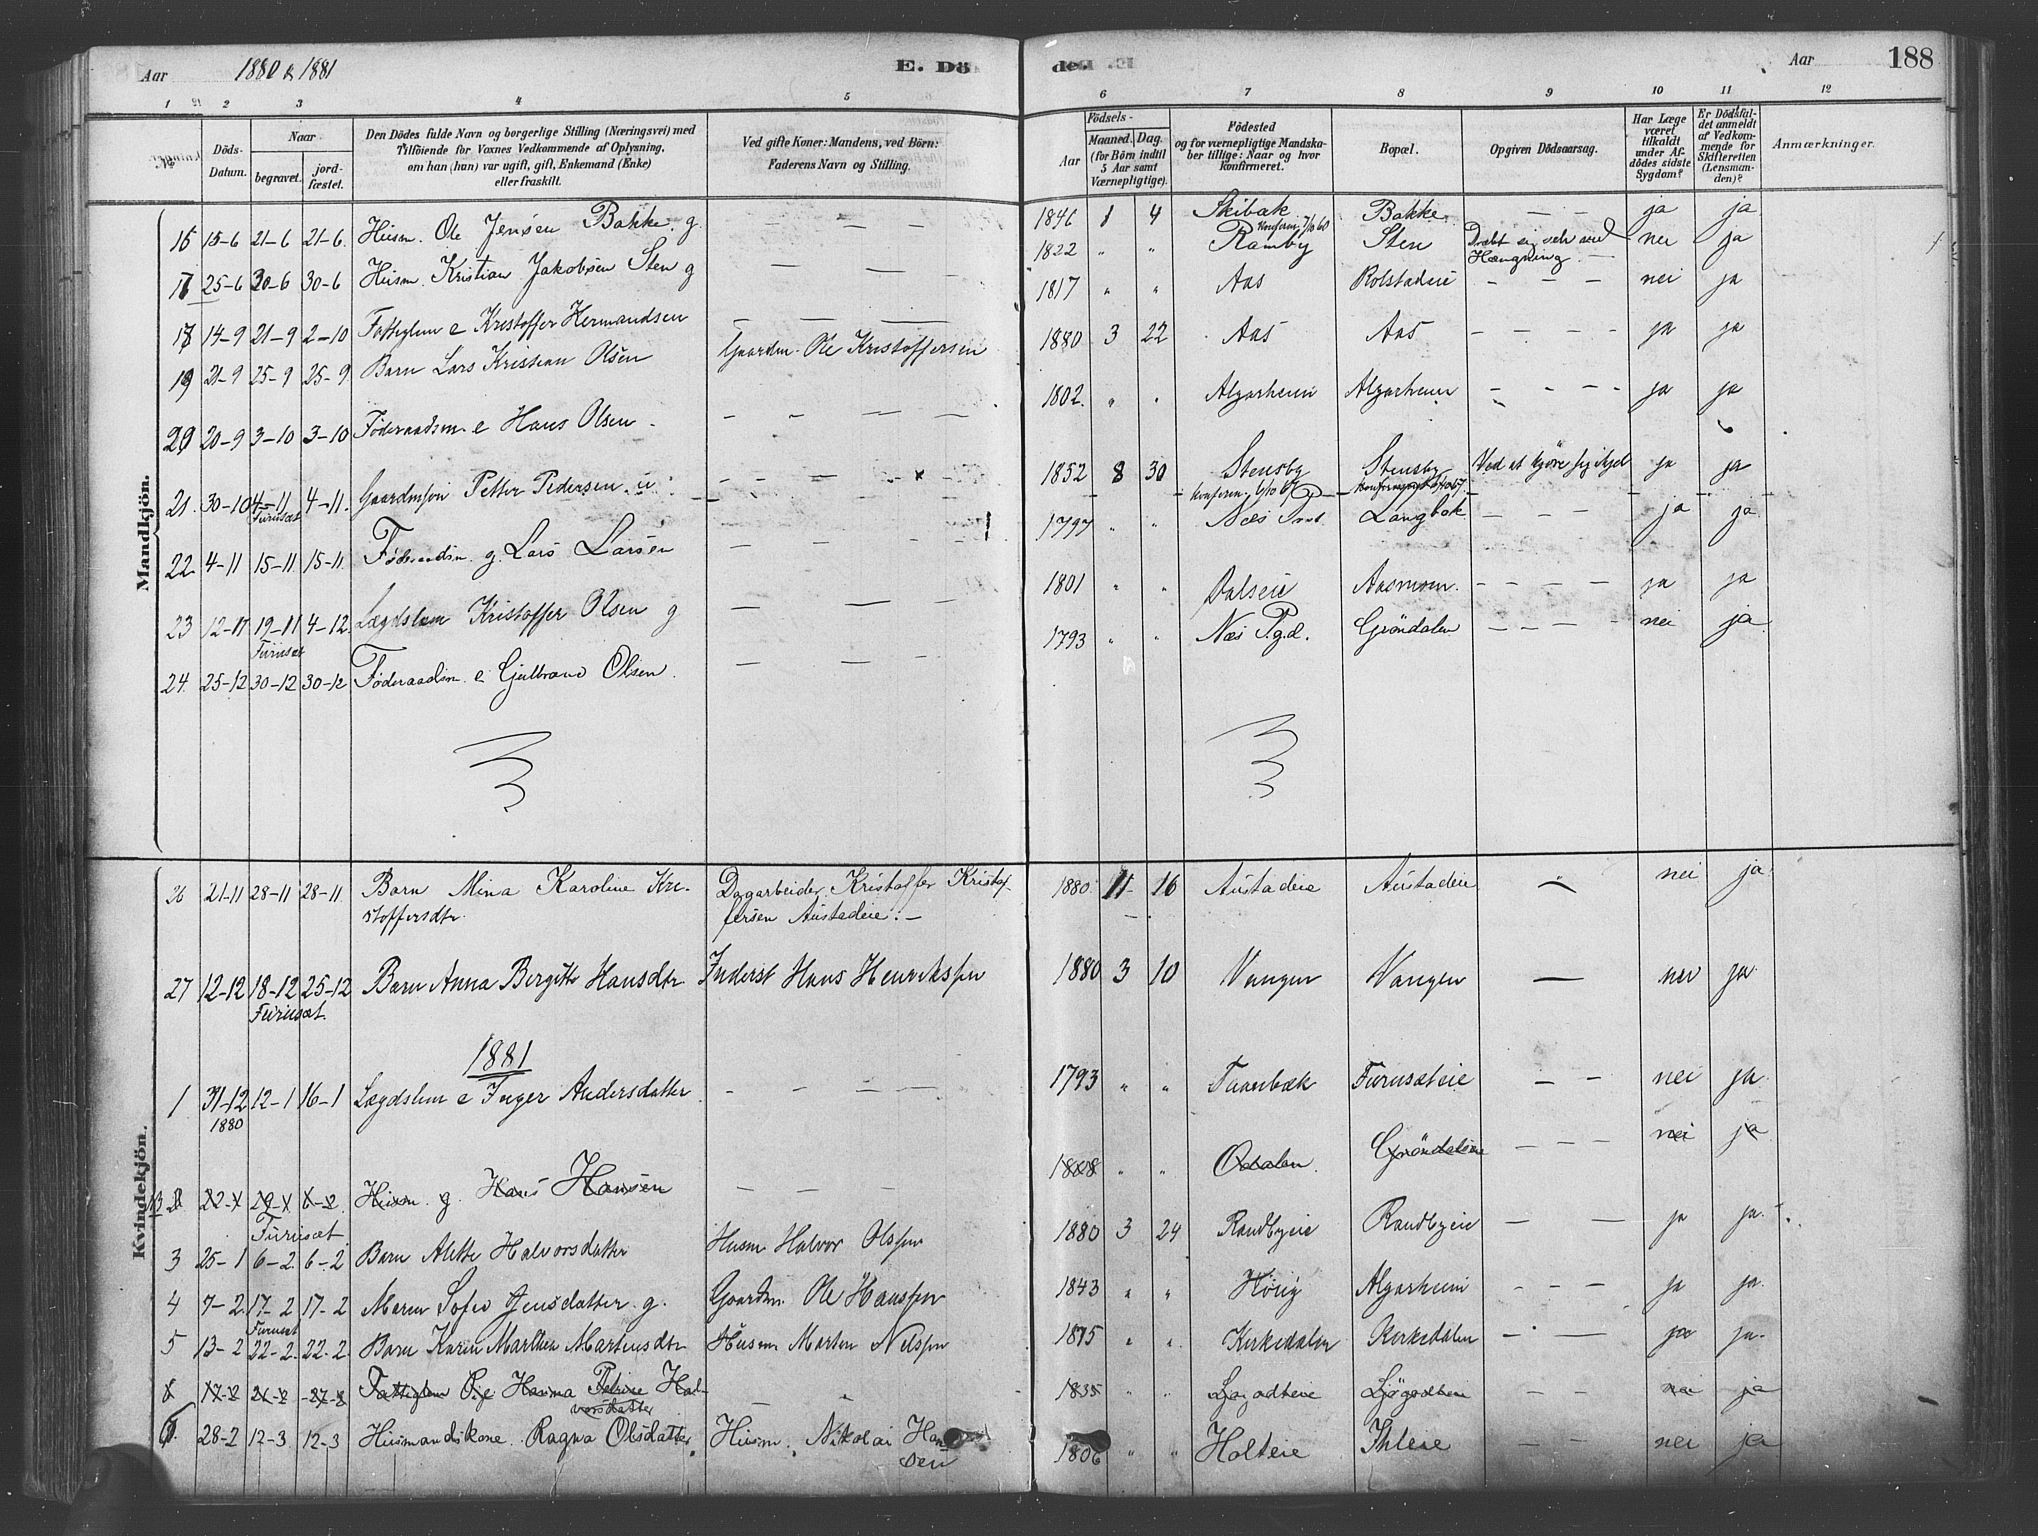 Aar 1880 & 1881 E. Dö
den. Aar 188
1 2 3 4 5 6 7 8 9 10 11 12
Döds-Datum. Naar begravet. jord-fæstet.
Den Dödes fulde Navn og borgerlige Stilling (Næringsvei) med
Tilföiende for Voxnes Vedkommende af Oplysning,
om han (hun) var ugift, gift, Enkemand (Enke)
eller fraskilt.
Ved gifte Koner: Mandens, ved Börn:
Faderens Navn og Stilling.
Födsels-
Aar Maaned. Dag.
(for Börn indtil
5 Aar samt
Værnepligtige).
Födested
og for værnepligtige Mandska-
ber tillige: Naar og hvor
konfirmeret.
Bopæl.
Opgiven Dödsaarsag.
Har Læge
været
tilkaldt
under Af-
dödes sidste
Sygdom?
Er Dödsfal-
det anmeldt
af Vedkom-
mende for
Skifteretten
(Lensman-
den)?
Anmærkninger.
Mandkjön.
16 15-6 21-6 21-6 Husm. Ole Jensen Bakke. g. — — — 1846 1 4 Skibak Konfirm. 7/10 60 Bakke — — ja ja
17 25-6 30-6 30-6 Husm. Kristian Jakobsen Sten g — — — 1822 " " Ramby Sten Dræbt sig selv ved Hængning — nei ja
18 14-9 21-9 2-10 Fattiglem e Kristoffer Hermandsen — — — 1817 " " Aas Rolstadeie — — — nei ja
19 21-9 25-9 25-9 Barn Lars Kristian Olsen Gaardm. Ole Kristoffersen 1880 3 22 Aas Aas — — — ja ja
20 20-9 3-10 3-10 Föderaadsm. e Hans Olsen — — — — 1802 " " Algarheim Algarheim — — — ja ja
21. 30-10 4-11 Furuset 4-11. Gaardmsön Petter Pedersen. u. — — — — 1852 8 30 Stensby Konfirm. 6/10 67 Stensby Ved at kjöre sig ihjel ja ja
22 4-11 15-11 15-11 Föderaadsm. g. Lars Larsen — — — — 1797 " " Næs Langbak — — — ja ja
23 12-11 19-11 Furuset 4-12. Lægdslem Kristoffer Olsen g — — — 1801 " " Dalseie Aasmoen. — — — — ja ja
24. 25-12 30-12 30-12 Föderaadsm. e Gulbrand Olsen. — — — 1793 " " Næs Pgd. Gröndalen — — — — nei ja
Kvindekjön.
26 21-11 28-11 28-11 Barn Mina Karoline Kri-
stoffersdtr. Dagarbeider Kristoffer Kristof-
fersen Austadeie. — 1880 11 16 Austadeie Austadeie " nei ja
27 12-12 18-12 Furuset. 25-12 Barn Anna Bergitte Hansdtr Inderst Hans Henriksen 1880 3 10 Vangen Vangen — nei ja
1881
1 31-12 1880 12-1 16-1 Lægdslem e Inger Andersdatter — — — — 1793 " " Furusæteie — — nei ja
2 22-1 29-1 Furuset 6-2 Husm. g. Hans Hansen — — — 1808 " " Odalen. Gröndaleie — — — nei ja
3 25-1 6-2. 6-2 Barn Alette Halvorsdatter Husm Halvor Olsen 1880 3 24 Randbyeie Randbyeie — — ja ja.
4 7-2. 17-2 Furuset 17-2 Maren Sofie Jensdatter. g. Gaardm. Ole Hansen 1843 " " Algarheim — — — ja ja.
5 13-2 22-2. 22-2 Barn Karin Marthea Martensdtr Husm Morten Nilsen 1875 " " Kirkedalen Kirkedalen — — ja ja.
6 17-2 21-2 27-2 Fattiglem Pige Hanna Petrine Hal-
vorsdatter " 1835 " " Ljögodteie Ljögodteie — — nei ja
28-2 12-3 12-3 Husmandskone. Ragna Olsdatter, Husm. Nikolai Han-
sen 1806 " " Holteie Ihleie — — nei ja